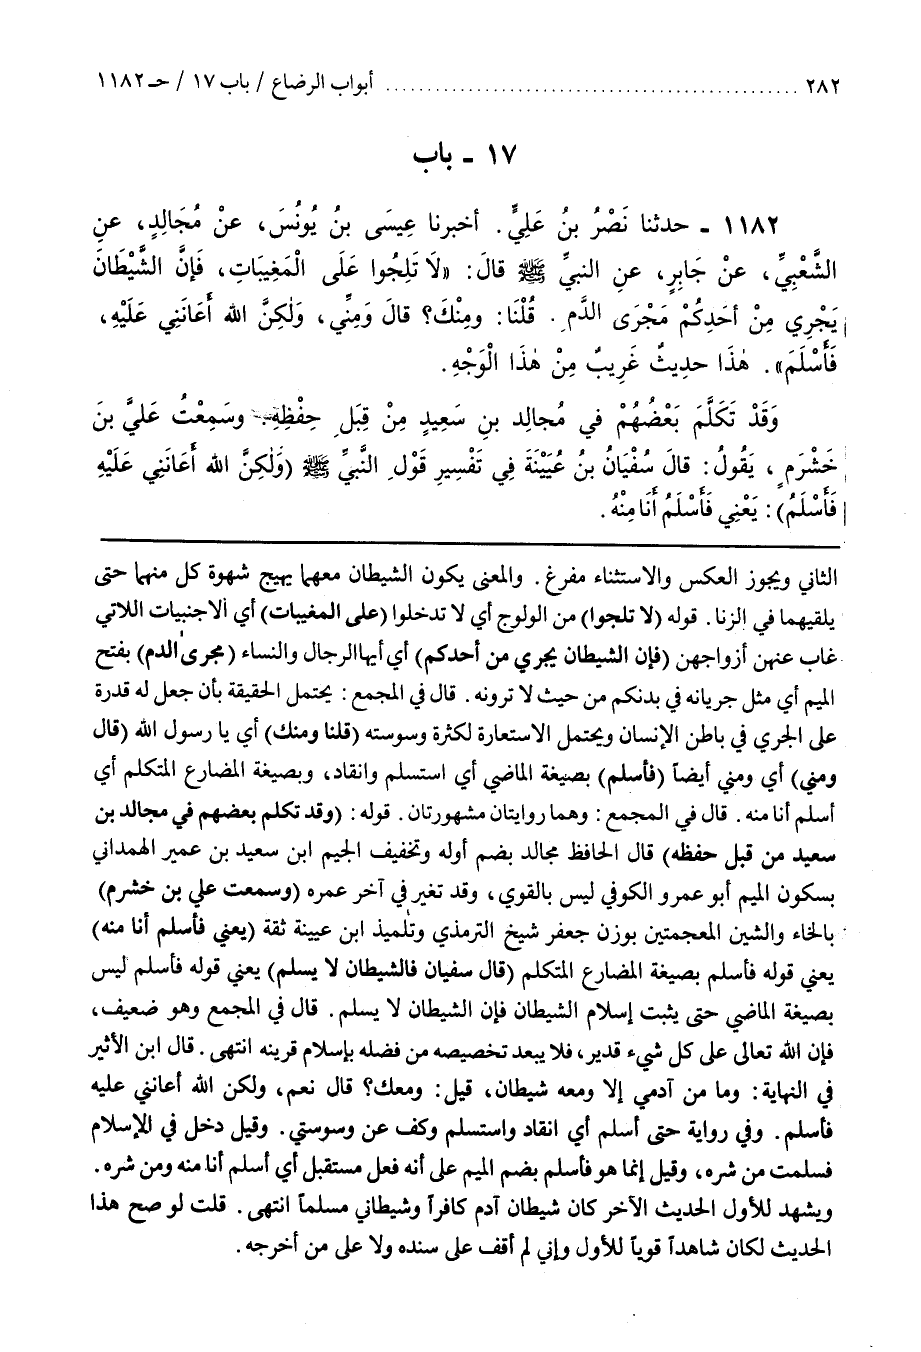 ٢٨٢ ........................................ أبواب الرضاع / باب ١٧ / حـ ١١٨٢
١٧ - باب
١١٨٢ - حدثنا نَصْرُ بنُ عَلِيٍّ. أخبرنا عِيسَى بنُ يُونُسَ، عنْ مُجَالِدٍ، عنِ
الشَّعْبِيِّ، عنْ جَابِرٍ، عنِ النبيِّ ﷺ قالَ: «لَا تَلِجُوا عَلَى الْمَغِيبَاتِ، فَإنَّ الشَّيْطَانَ
يَجْرِي مِنْ أحَدِكُمْ مَجْرَى الدَّمِ. قُلْنَا: ومِنْكَ؟ قالَ وَمِنِّي، وَلٰكِنَّ الله أَعَانَنِي عَلَيْهِ،
فَأَسْلَمَ». هٰذَا حديثٌ غَرِيبٌ مِنْ هٰذَا الْوَجْهِ.
وَقَدْ تَكَلَّمَ بَعْضُهُمْ في مُجالِد بنِ سَعِيدٍ مِنْ قِبَلِ حِفْظِهِ. وسَمِعْتُ عَليَّ بنَ
خَشْرَمٍ، يَقُولُ: قالَ سُفْيَانُ بنُ عُيَيْنَةَ فِي تَفْسِيرِ قَوْلِ النَّبيِّ ﷺ (وَلٰكِنَّ الله أَعَانَنِي عَلَيْهِ
فَأَسْلَمُ): يَعْنِي فَأَسْلَمُ أَنَا مِنْهُ.
الثاني ويجوز العكس والاستثناء مفرغ. والمعنى يكون الشيطان معهما يهيج شهوة كل منهما حتى
يلقيهما في الزنا. قوله (لا تلجوا) من الولوج أي لا تدخلوا (على المغيبات) أي الأجنبيات اللاتي
غاب عنهن أزواجهن (فإن الشيطان يجري من أحدكم) أي أيها الرجال والنساء (مجرى الدم) بفتح
الميم أي مثل جريانه في بدنكم من حيث لا ترونه. قال في المجمع: يحتمل الحقيقة بأن جعل له قدرة
على الجري في باطن الإنسان ويحتمل الاستعارة لكثرة وسوسته (قلنا ومنك) أي يا رسول الله (قال
ومني) أي ومني أيضاً (فأسلم) بصيغة الماضي أي استسلم وانقاد، وبصيغة المضارع المتكلم أي
أسلم أنا منه. قال في المجمع: وهما روايتان مشهورتان. قوله: (وقد تكلم بعضهم في مجالد بن
سعيد من قبل حفظه) قال الحافظ مجالد بضم أوله وتخفيف الجيم ابن سعيد بن عمير الهمداني
بسكون الميم أبو عمرو الكوفي ليس بالقوي، وقد تغير في آخر عمره (وسمعت علي بن خشرم)
بالخاء والشين المعجمتين بوزن جعفر شيخ الترمذي وتلميذ ابن عيينة ثقة (يعني فأسلم أنا منه)
يعني قوله فأسلم بصيغة المضارع المتكلم (قال سفيان فالشيطان لا يسلم) يعني قوله فأسلم ليس
بصيغة الماضي حتى يثبت إسلام الشيطان فإن الشيطان لا يسلم. قال في المجمع وهو ضعيف،
فإن الله تعالى على كل شيء قدير، فلا يبعد تخصيصه من فضله بإسلام قرينه انتهى. قال ابن الأثير
في النهاية: وما من آدمي إلا ومعه شيطان، قيل: ومعك؟ قال نعم، ولكن الله أعانني عليه
فأسلم. وفي رواية حتى أسلم أي انقاد واستسلم وكف عن وسوستي. وقيل دخل في الإسلام
فسلمت من شره، وقيل إنما هو فأسلم بضم الميم على أنه فعل مستقبل أي أسلم أنا منه ومن شره.
ويشهد للأول الحديث الآخر كان شيطان آدم كافراً وشيطاني مسلماً انتهى. قلت لو صح هذا
الحديث لكان شاهداً قوياً للأول وإني لم أقف على سنده ولا على من أخرجه.